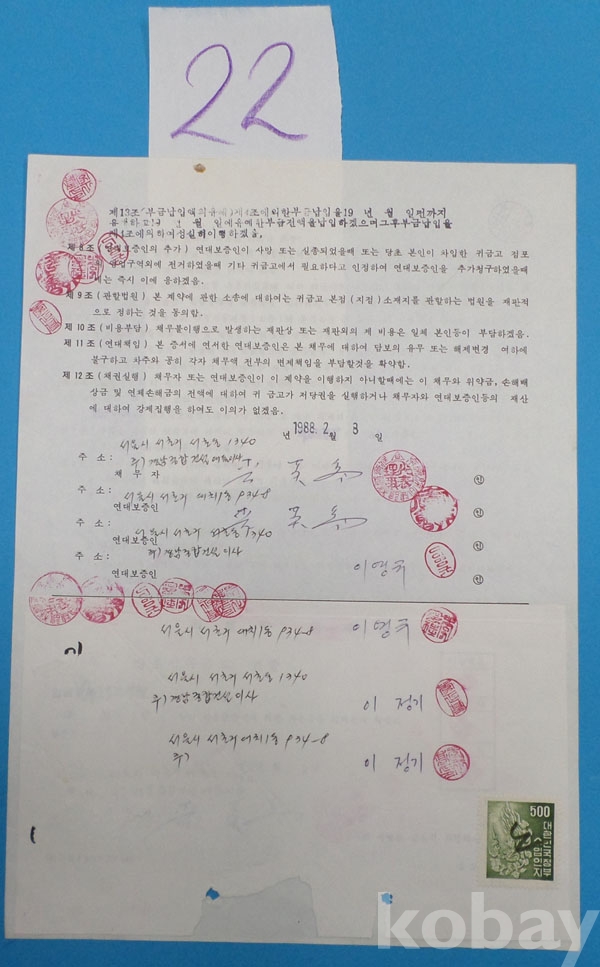 22
제13조 (부금납입액의유예)제4조에의한부금납입을19 년 월 일먼까지
유예하고19 년 월 일에유예한부금전액을납입하겠으며그후부금납입을
제4조에의하여성실히이행하겠음.
제 8 조 (연대보증인의 추가) 연대보증인이 사망 또는 실종되었을때 또는 당초 본인이 차입한 귀금고 점포
영업구역외에 전거하였을때 기타 귀금고에서 필요하다고 인정하여 연대보증인을 추가청구하였을때
에는 즉시 이에 응하겠음.
제 9 조 (관할법원) 본 계약에 관한 소송에 대하여는 귀금고 본점 (지점) 소재지를 관할하는 법원을 재판적
으로 정하는 것을 동의함.
제 10 조 (비용부담) 채무불이행으로 발생하는 재판상 또는 재판외의 제 비용은 일체 본인등이 부담하겠음.
제 11 조 (연대책임) 본 증서에 연서한 연대보증인은 본 채무에 대하여 담보의 유무 또는 해제변경 여하에
불구하고 차주와 공히 각자 채무액 전부의 변제책임을 부담할것을 확약함.
제 12 조 (채권실행) 채무자 또는 연대보증인이 이 계약을 이행하지 아니할때에는 이 채무와 위약금, 손해배
상금 및 연체손해금의 전액에 대하여 귀 금고가 저당권을 실행하거나 채무자와 연대보증인등의 재산
에 대하여 강제집행을 하여도 이의가 없겠음.
년 1988. 2월 3 일
서울시 서초구 서초동 1340
주 소 : 주) 경남종합건설 대표이사
채 무 자 인
주 소 : 서울시 서초구 대치1동 934-8
연대보증인 인
주 소 : 서울시 서초구 서초동 1340
연대보증인 인
주 소 : 주) 경남종합건설 이사
연대보증인 이영규 인
서울시 서초구 대치1동 934-8 이영규
서울시 서초구 서초동 1340
주) 경남종합건설 이사 이 정기
서울시 서초구 대치1동 934-8
주) 이 정기
500
대한민국정부
수입인지
kobay